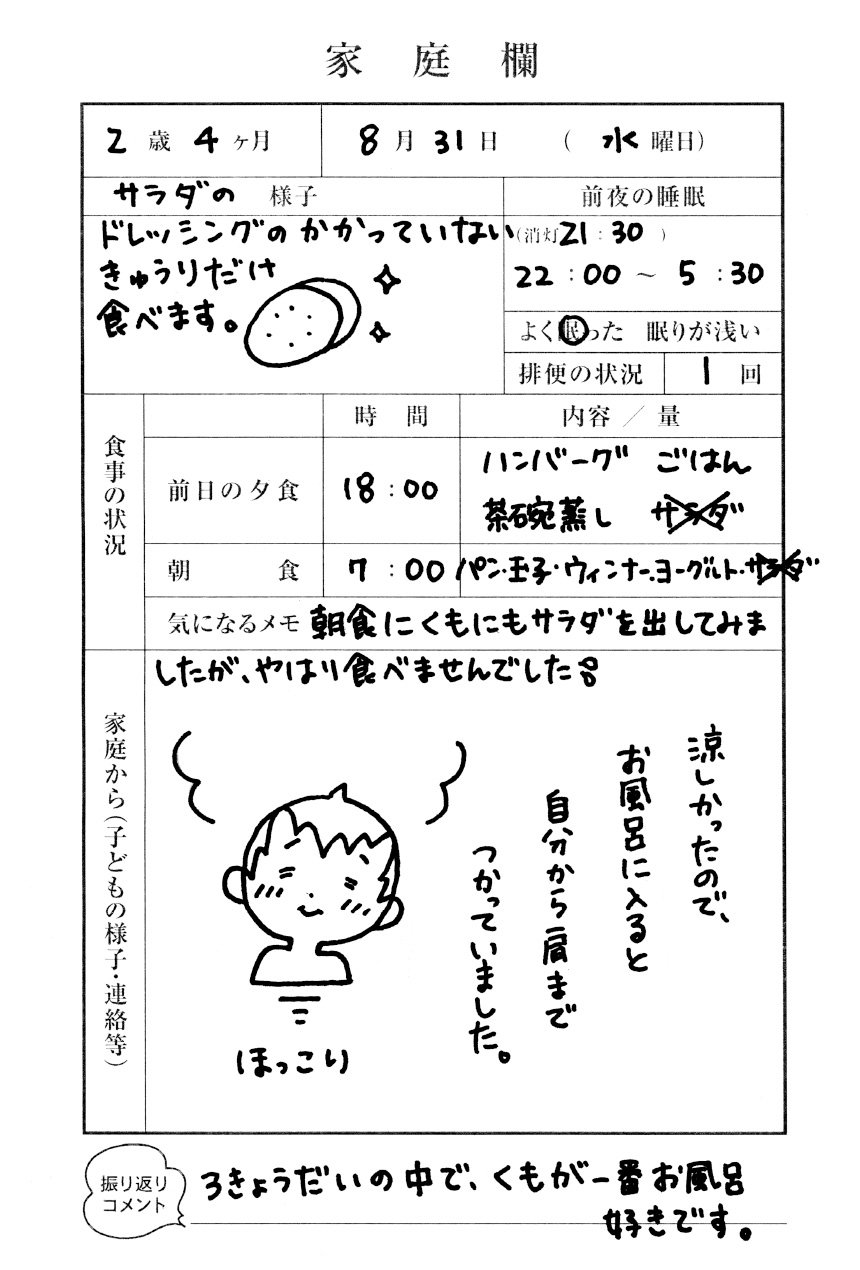 家庭欄
2歳4ヶ月 8月31日 (水曜日)
サラダの 様子
ドレッシングのかかっていない
きゅうりだけ
食べます。
前夜の睡眠
(消灯21:30)
22:00～5:30
よく眠った 眠りが浅い
排便の状況 1回
食事の状況
時間 内容／量
前日の夕食 18:00 ハンバーグ ごはん
茶碗蒸し サラダ
朝食 7:00 パン・玉子・ウィンナー・ヨーグルト・サラダ
気になるメモ 朝食にくもにもサラダを出してみま
したが、やはり食べませんでした
家庭から(子どもの様子・連絡等)
涼しかったので、
お風呂に入ると
自分から肩まで
つかっていました。
ほっこり
振り返り
コメント
3きょうだいの中で、くもが一番お風呂
好きです。